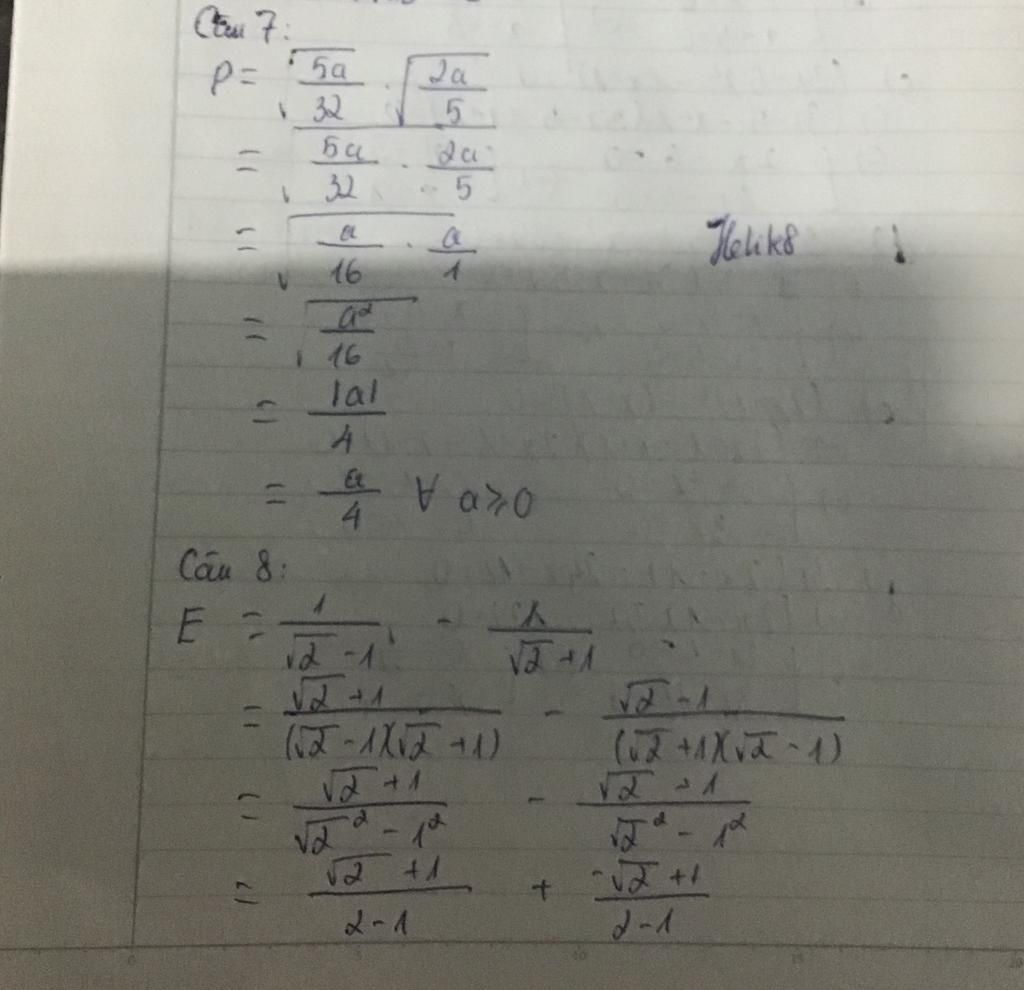 Câu 7:
P = √(5a/32) . √(2a/5)
= √(5a/32 . 2a/5)
= √(a/16 . a/1)
Helik8
= √(a²/16)
= |a|/4
= a/4 ∀ a ≥ 0
Câu 8:
E = 1/(√2 - 1) - 1/(√2 + 1)
= (√2 + 1)/((√2 - 1)(√2 + 1)) - (√2 - 1)/((√2 + 1)(√2 - 1))
= (√2 + 1)/(√2² - 1²) - (√2 - 1)/(√2² - 1²)
= (√2 + 1)/(2 - 1) + (-√2 + 1)/(2 - 1)